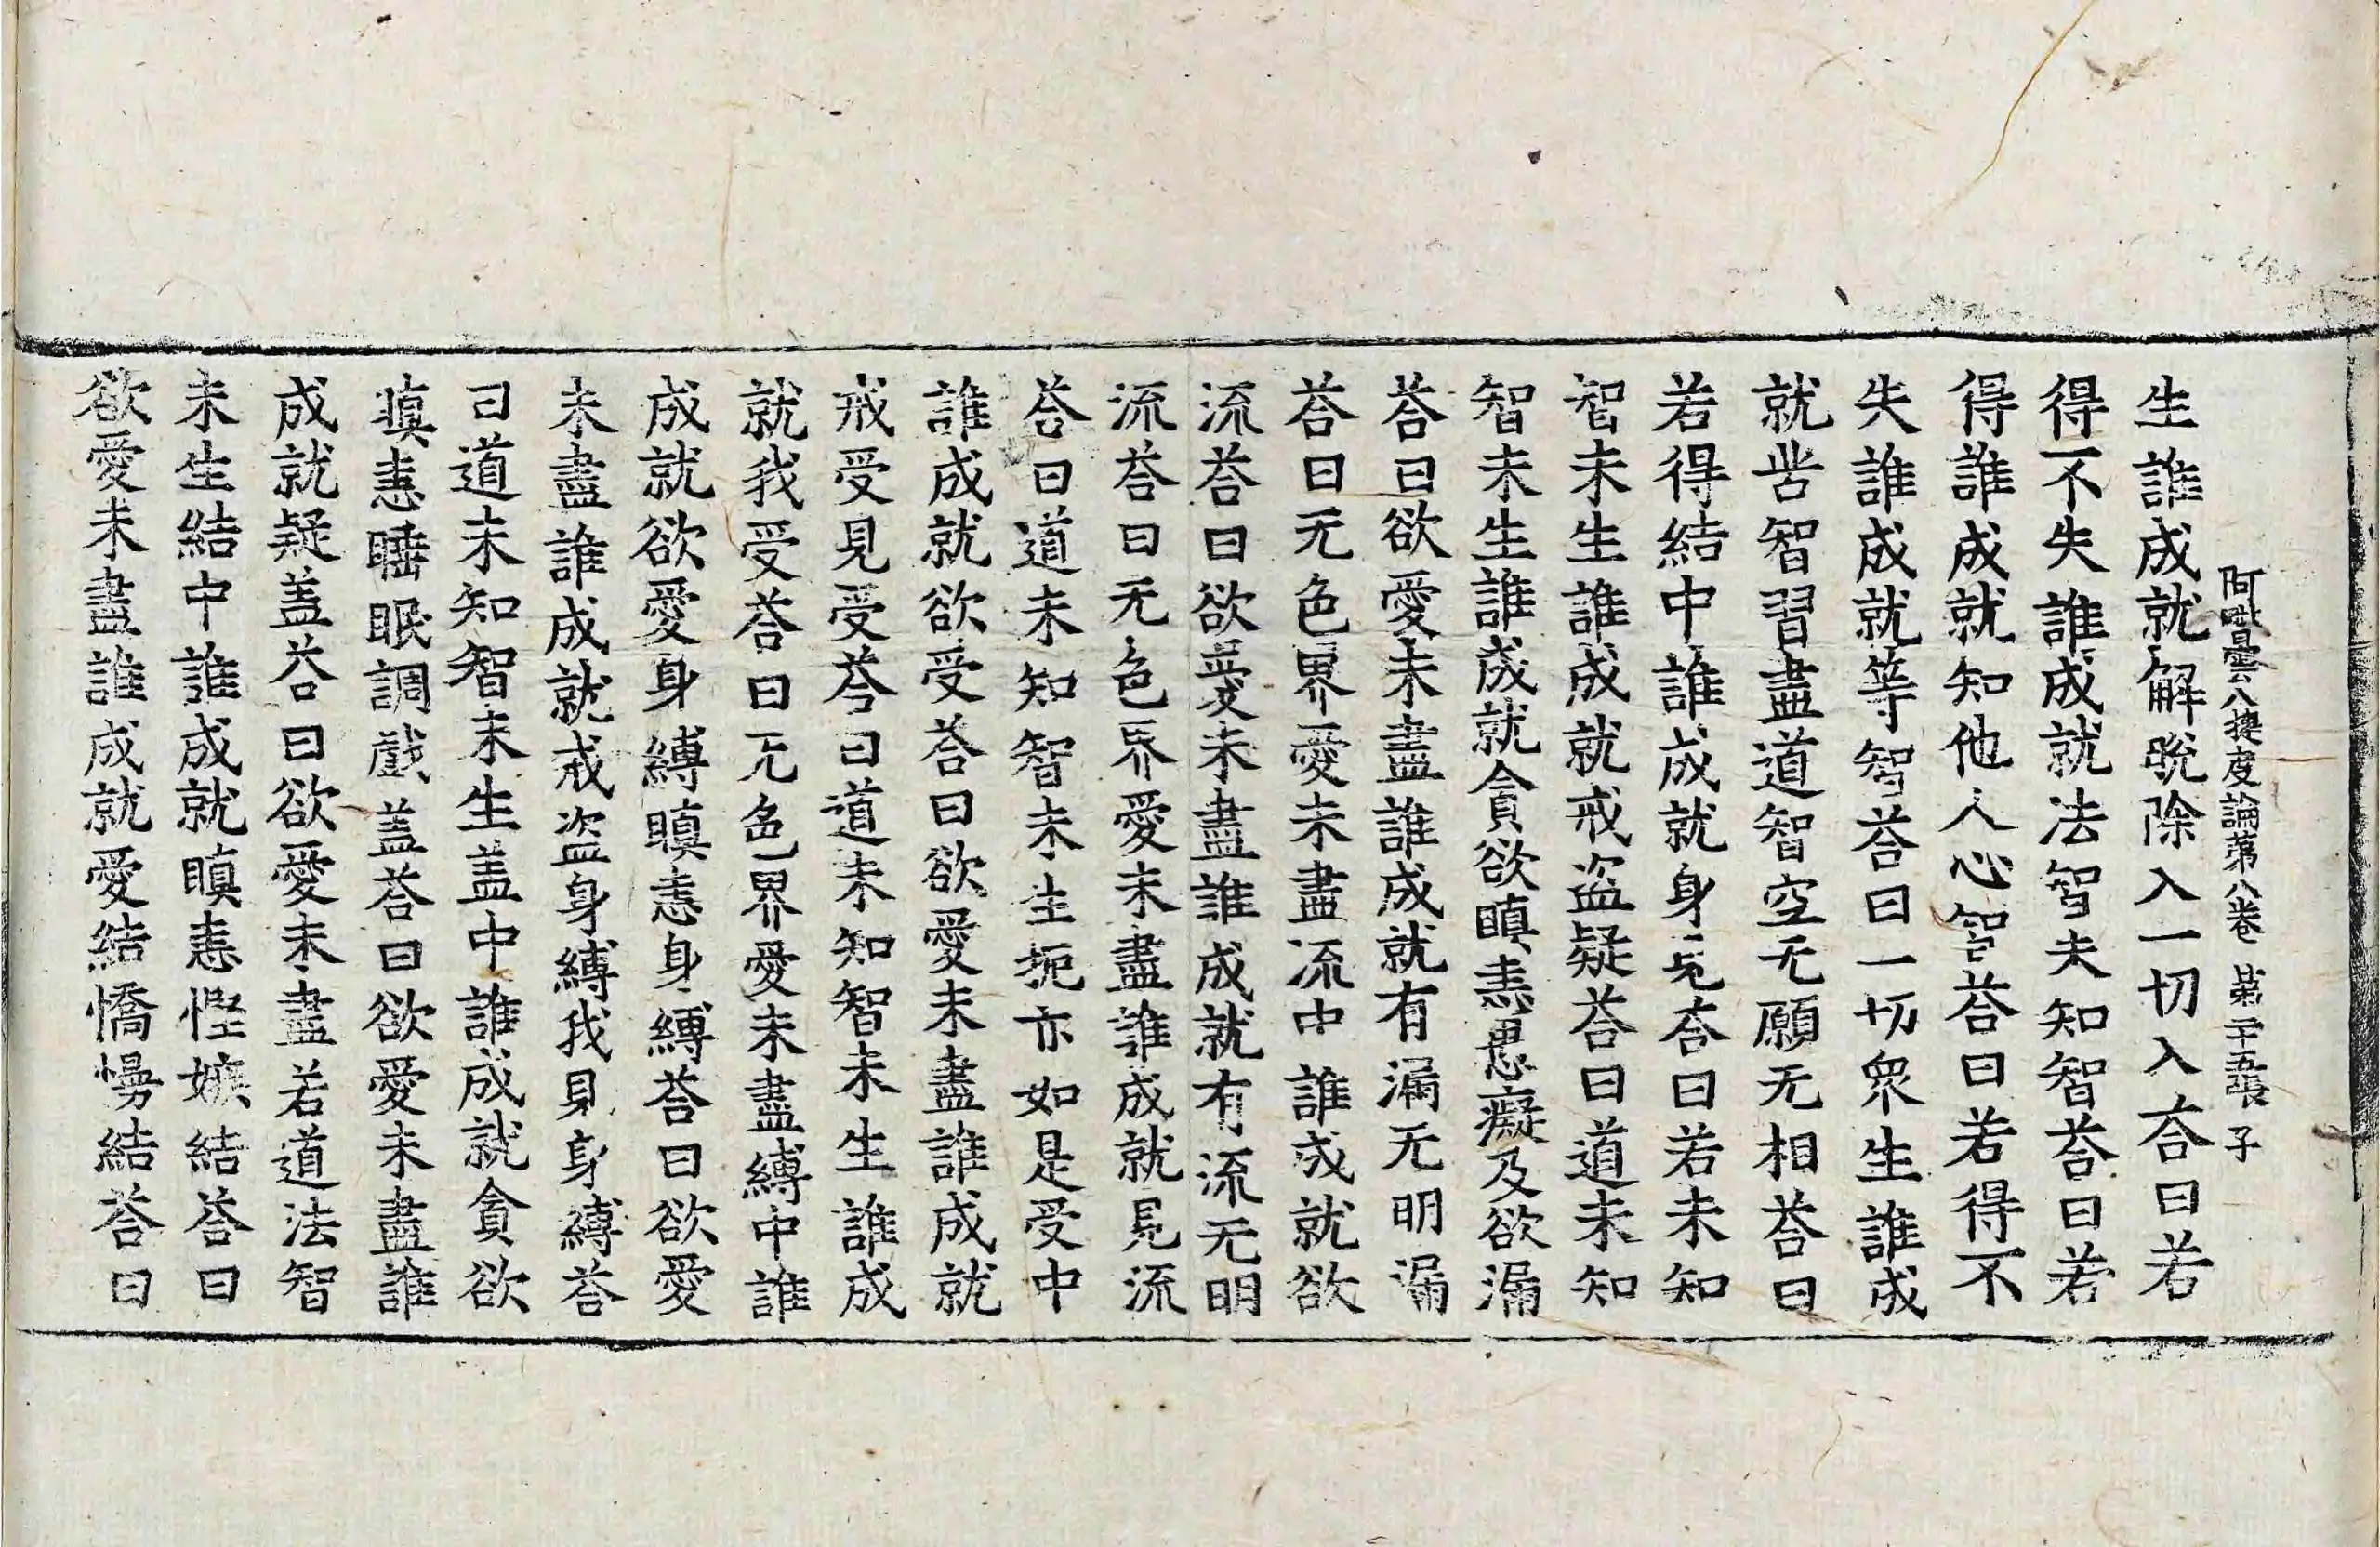 阿毗曇八揵度論第八卷 第二十五張 子
生誰成就解脫除入一切入荅曰若
得不失誰成就法智未知智荅曰若
得誰成就知他人心智荅曰若得不
失誰成就等智荅曰一切衆生誰成
就苦智習盡道智空无願无相荅曰
若得結中誰成就身見荅曰若未知
智未生誰成就戒盜疑荅曰道未知
智未生誰成就貪欲瞋恚愚癡及欲漏
荅曰欲愛未盡誰成就有漏无明漏
荅曰无色界愛未盡流中誰成就欲
流荅曰欲愛未盡誰成就有流无明
流荅曰无色界愛未盡誰成就見流
荅曰道未知智未生扼亦如是受中
誰成就欲受荅曰欲愛未盡誰成就
戒受見受荅曰道未知智未生誰成
就我受荅曰无色界愛未盡縛中誰
成就欲愛身縛瞋恚身縛荅曰欲愛
未盡誰成就戒盜身縛我見身縛荅
曰道未知智未生盖中誰成就貪欲
瞋恚睡眠調戲盖荅曰欲愛未盡誰
成就疑盖荅曰欲愛未盡若道法智
未生結中誰成就瞋恚慳嫉結荅曰
欲愛未盡誰成就愛結憍慢結荅曰